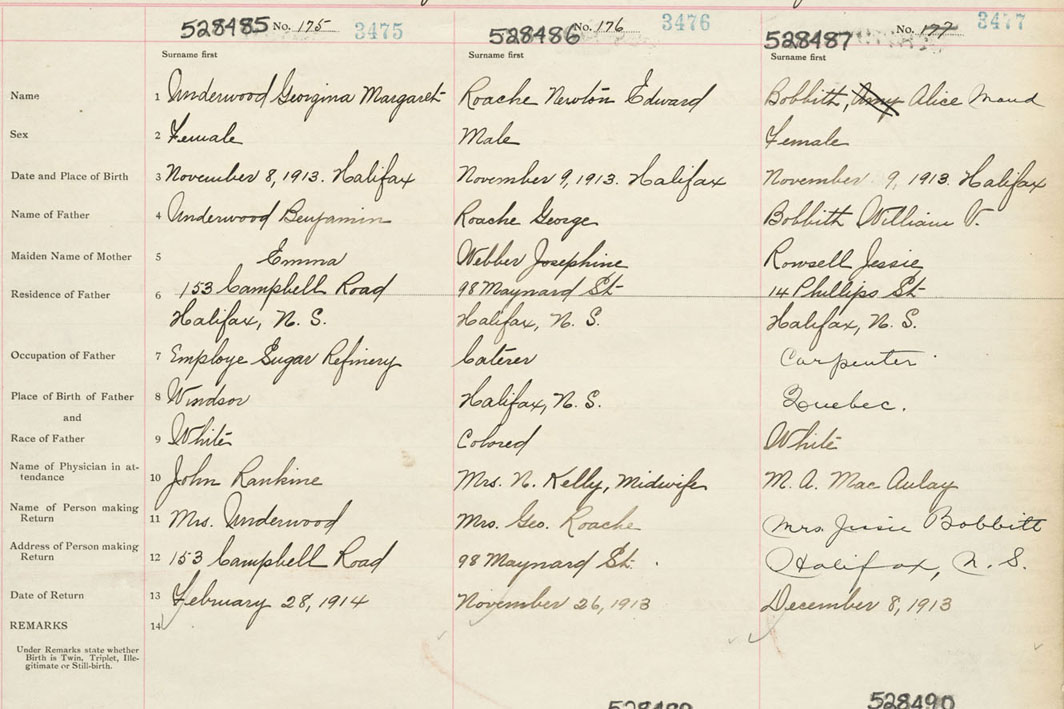 528485 No. 175 3475 528486 No. 176 3476 528487 No. 177 3477
Surname first Surname first Surname first
Name 1 Underwood Georgina Margaret Roache Newton Edward Bobbith, Amy Alice Maud
Sex 2 Female Male Female
Date and Place of Birth 3 November 8, 1913. Halifax November 9, 1913. Halifax November 9, 1913. Halifax
Name of Father 4 Underwood Benjamin Roache George Bobbith William V.
Maiden Name of Mother 5 Emma Webber Josephine Rowsell Jessie
Residence of Father 6 153 Campbell Road 98 Maynard St. 14 Phillips St.
Halifax, N. S. Halifax, N. S. Halifax, N. S.
Occupation of Father 7 Employe Sugar Refinery Caterer Carpenter
Place of Birth of Father 8 Windsor Halifax, N. S. Quebec.
and
Race of Father 9 White Colored White
Name of Physician in at-
tendance 10 John Rankine Mrs. N. Kelly, Midwife M. A. Mac Aulay
Name of Person making
Return 11 Mrs. Underwood Mrs. Geo. Roache Mrs. Jessie Bobbitt
Address of Person making
Return 12 153 Campbell Road 98 Maynard St. Halifax, N. S.
Date of Return 13 February 28, 1914 November 26, 1913 December 8, 1913
REMARKS 14
Under Remarks state whether
Birth is Twin, Triplet, Ille-
gitimate or Still-birth.
528490